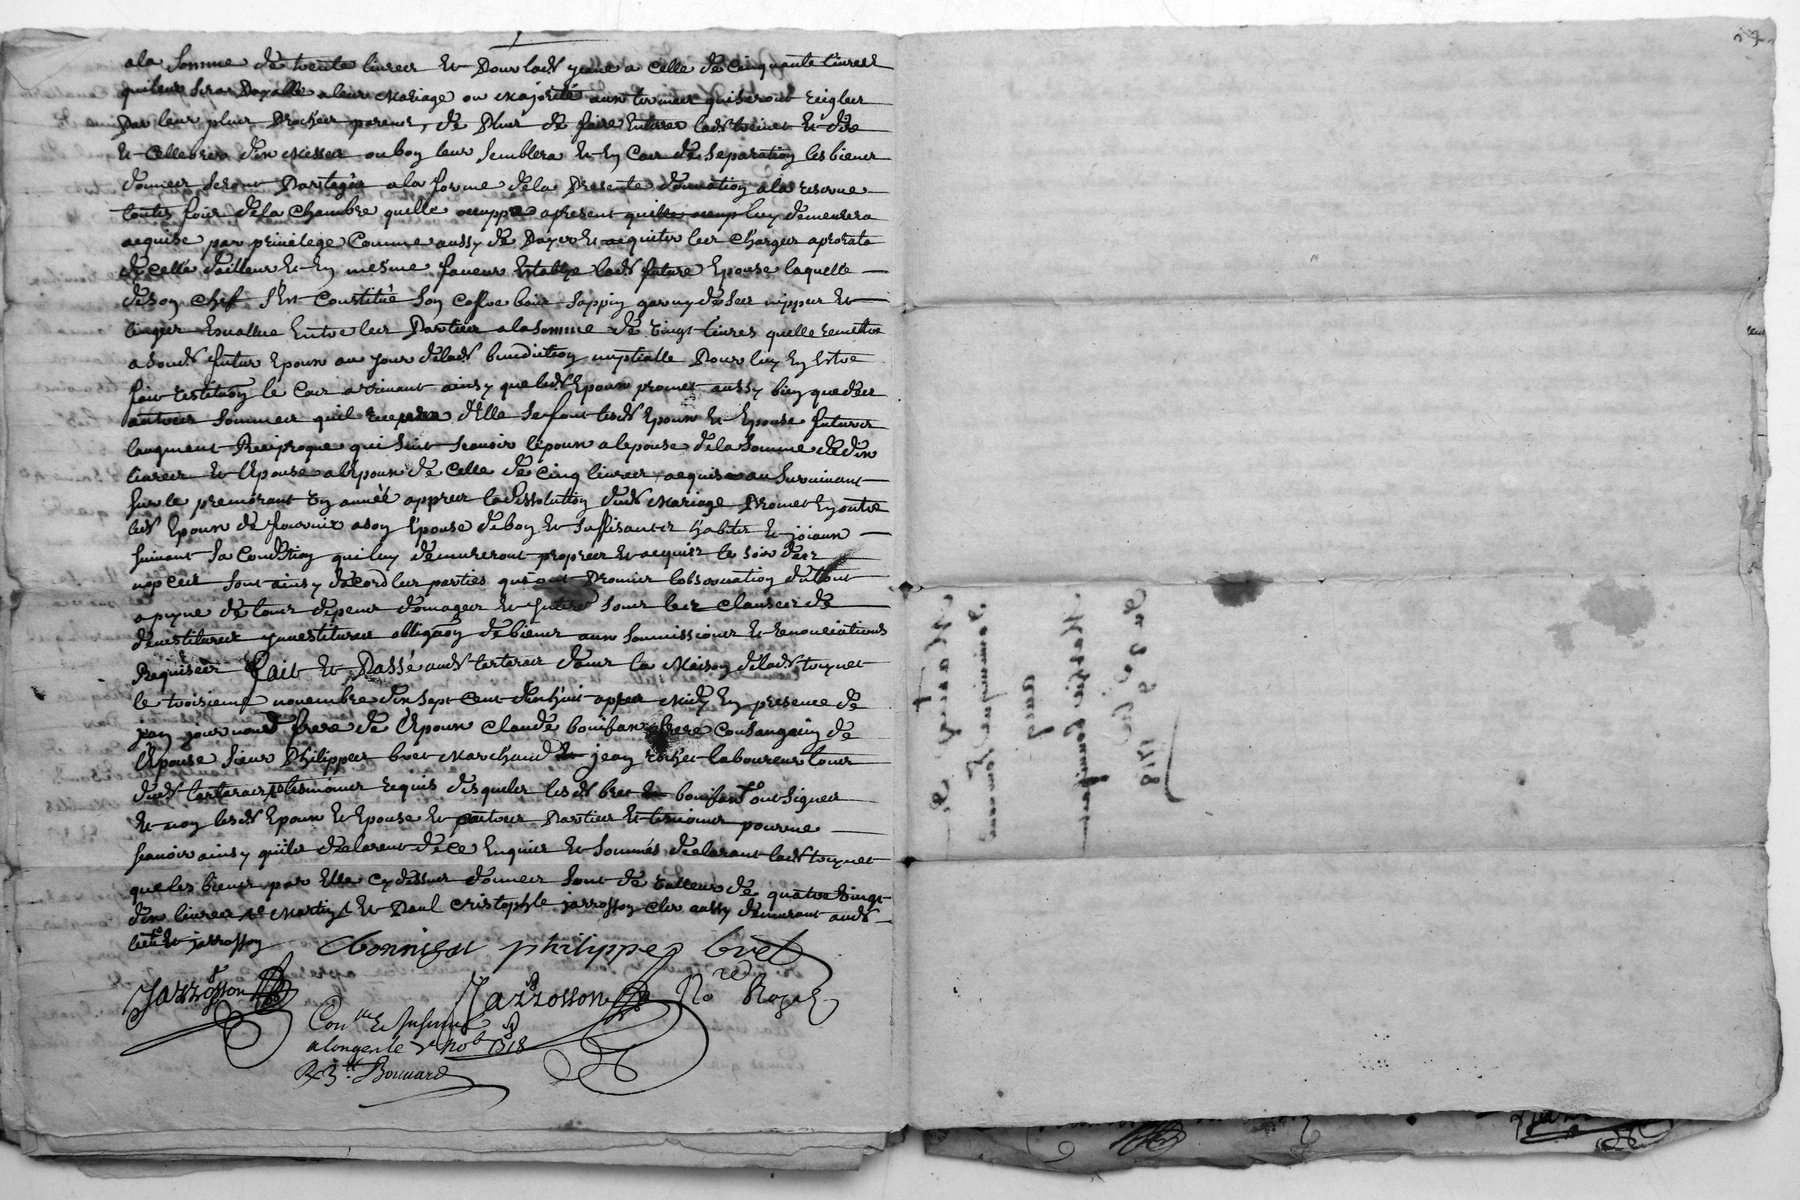 a la somme de trente livres et pour lad. jeane a celle de cinquante livres
qui leur seras payable a leur mariage ou majorité aux termes qui seront reiglez
par leur plus proches parens, de plus de faire enterrer lad. toinet et dire
et cellebrer dix messes ou bon leur semblera et en cas de separation les biens
donnez seront partagés a la forme de la presente donnation a la reserve
toutes fois de la chambre quelle occuppe apresent qui luy demeurera
acquise par privilege comme aussy de payer et acquiter les charges aprorata
dicelle dailleurs et en mesme faveur establye lad. future epouse laquelle
de son chef s'est constitué son coffre bois sappin garny de ses nippes et
linges evallue entre les parties a la somme de vingt livres quelle remettra
a sond. futur epoux au jour de lad. benediction nuptialle pour luy en estre
fait restitution le cas arrivant ainsy que led. epoux promet aussy bien que des
autres sommes quil recepvra d'elle se font lesd. epoux et epouse futurs
laugment reciproque qui suit scavoir lepoux a lepouse de la somme de dix
livres et lepouse a lepoux de celle de cinq livres acquis au survivant
sur le premourant un année appres la dissolution dud. mariage promet en outre
led. epoux de fournir a son epouse de bon et suffisantz habits et joiaux
suivant sa condition qui luy demureront propres et acquis le soir des
nopces sont ainsy dacord les parties qui ont promis lobservation du tout
a peyne de tous depens domages et interest sous les clauses de
devestitures investitures obligaon de biens aux soumissions et renonciations
requises fait et passé aud. tartaras dans la maison de lad. toynet
le troisieme novembre dix sept cent dix huit appres midy en presence de
jean journoud frere de l'epoux claude bonifan frere consanguin de
l'epouse sieur philippes bret marchand jean rochet laboureur tous
dud. tartaras tesmoins requis desqueles lesd. bret et bonifant ont signez
et non lesd. epoux et epouse et autres parties et tesmoins pour ne
scavoir ainsy quils declarent de ce enquis et sommés declarant lad. toynet
que les biens par elle cy dessus donnez sont de valleur de quatre vingt
dix livres Me Martin et Paul Cristophle jarrosson clers aussy demurant aud.
lieu et jarrosson
C bonnifat philippes bret
Jarrosson Jarrosson No.re Royal
Con.lle et Insinué
a longes le 7e nob. 1718
R 3 tt Bouuard
3 9bre 1718
Mariage
avec